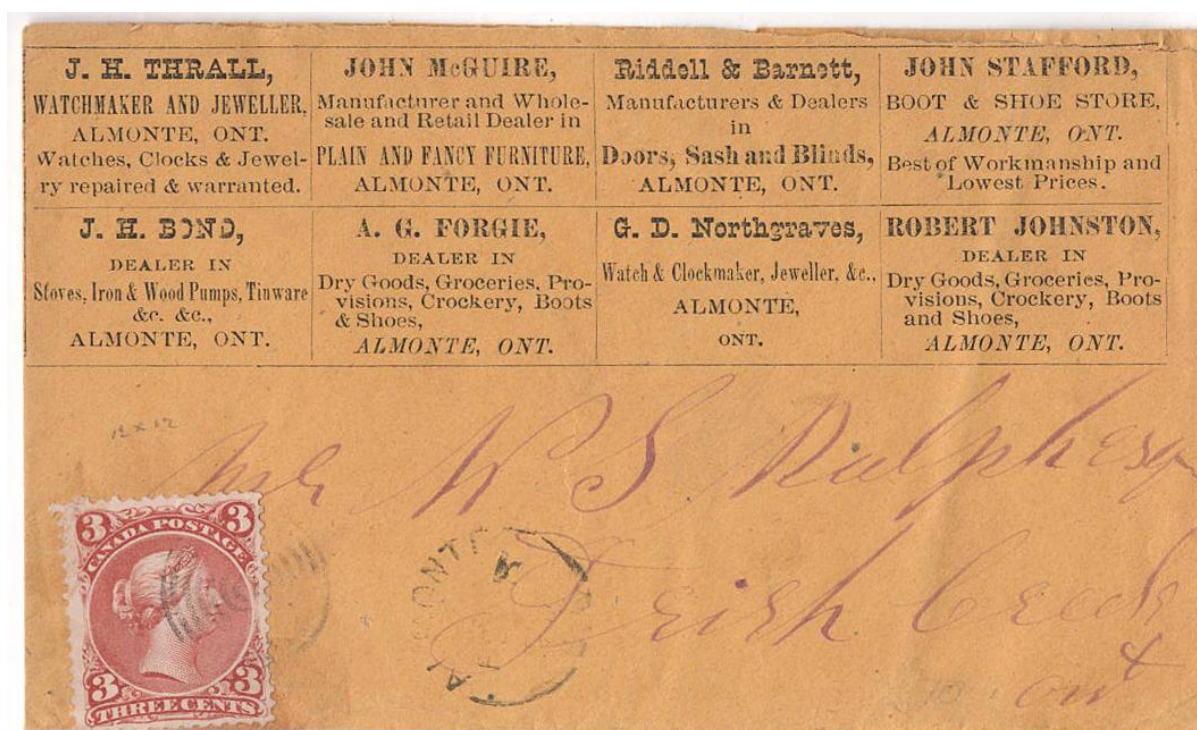 J. H. THRALL,
WATCHMAKER AND JEWELLER.
ALMONTE, ONT.
Watches, Clocks & Jewel-
ry repaired & warranted.
JOHN McGUIRE,
Manufacturer and Whole-
sale and Retail Dealer in
PLAIN AND FANCY FURNITURE,
ALMONTE, ONT.
Riddell & Barnett,
Manufacturers & Dealers
in
Doors, Sash and Blinds,
ALMONTE, ONT.
JOHN STAFFORD,
BOOT & SHOE STORE,
ALMONTE, ONT.
Best of Workmanship and
Lowest Prices.
J. H. BOND,
DEALER IN
Stoves, Iron & Wood Pumps, Tinware
&c. &c.,
ALMONTE, ONT.
A. G. FORGIE,
DEALER IN
Dry Goods, Groceries, Pro-
visions, Crockery, Boots
& Shoes,
ALMONTE, ONT.
G. D. Northgraves,
Watch & Clockmaker, Jeweller, &c.,
ALMONTE,
ONT.
ROBERT JOHNSTON,
DEALER IN
Dry Goods, Groceries, Pro-
visions, Crockery, Boots
and Shoes,
ALMONTE, ONT.
12 x 12
S Ralph esq
Irish Creek
ont
3 3
CANADA POSTAGE
3 3
THREE CENTS